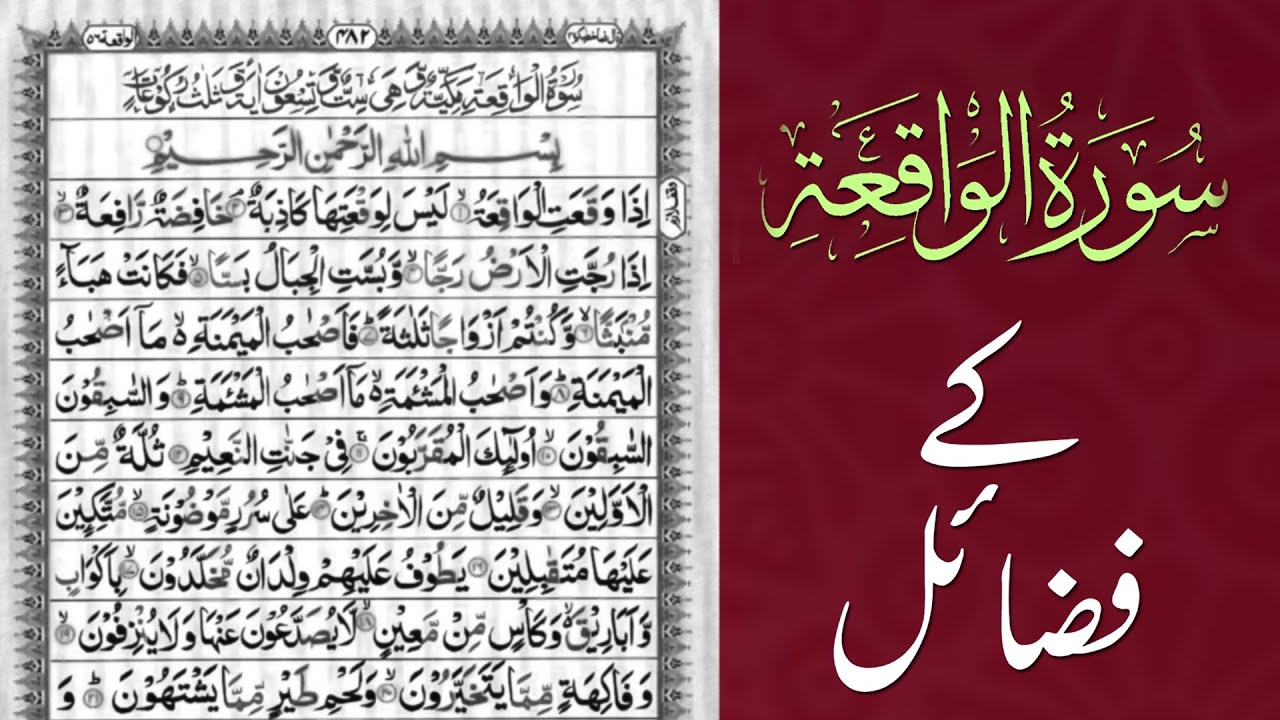 قال فما خطبكم ۴۸۲ الواقعة ۵۶
سُوْرَةُ الْوَاقِعَةِ مَكِّيَّةٌ وَّهِيَ سِتٌّ وَّتِسْعُوْنَ اٰيَةً وَّثَلٰثُ رُكُوْعَاتٍ
بِسْمِ اللّٰهِ الرَّحْمٰنِ الرَّحِيْمِ
اِذَا وَقَعَتِ الْوَاقِعَةُ ۙ۱ لَيْسَ لِوَقْعَتِهَا كَاذِبَةٌ ۘ۲ خَافِضَةٌ رَّافِعَةٌ ۙ۳
اِذَا رُجَّتِ الْاَرْضُ رَجًّا ۙ۴ وَّبُسَّتِ الْجِبَالُ بَسًّا ۙ۵ فَكَانَتْ هَبَآءً
مُّنْۢبَثًّا ۙ۶ وَّكُنْتُمْ اَزْوَاجًا ثَلٰثَةً ؕ۷ فَاَصْحٰبُ الْمَيْمَنَةِ ۙ۬ مَاۤ اَصْحٰبُ
الْمَيْمَنَةِ ؕ۸ وَاَصْحٰبُ الْمَشْـَٔمَةِ ۙ۬ مَاۤ اَصْحٰبُ الْمَشْـَٔمَةِ ؕ۹ وَالسّٰبِقُوْنَ
السّٰبِقُوْنَ ۙ۱۰ اُولٰٓئِكَ الْمُقَرَّبُوْنَ ۚ۱۱ فِيْ جَنّٰتِ النَّعِيْمِ ۱۲ ثُلَّةٌ مِّنَ
الْاَوَّلِيْنَ ۙ۱۳ وَقَلِيْلٌ مِّنَ الْاٰخِرِيْنَ ؕ۱۴ عَلٰى سُرُرٍ مَّوْضُوْنَةٍ ۙ۱۵ مُّتَّكِـِٕيْنَ
عَلَيْهَا مُتَقٰبِلِيْنَ ۱۶ يَطُوْفُ عَلَيْهِمْ وِلْدَانٌ مُّخَلَّدُوْنَ ۙ۱۷ بِاَكْوَابٍ
وَّاَبَارِيْقَ ۙ۬ وَكَاْسٍ مِّنْ مَّعِيْنٍ ۙ۱۸ لَّا يُصَدَّعُوْنَ عَنْهَا وَلَا يُنْزِفُوْنَ ۙ۱۹
وَفَاكِهَةٍ مِّمَّا يَتَخَيَّرُوْنَ ۙ۲۰ وَلَحْمِ طَيْرٍ مِّمَّا يَشْتَهُوْنَ ؕ۲۱ وَ
وقف لازم
سُورَةُ الْوَاقِعَةِ
کے
فضائل